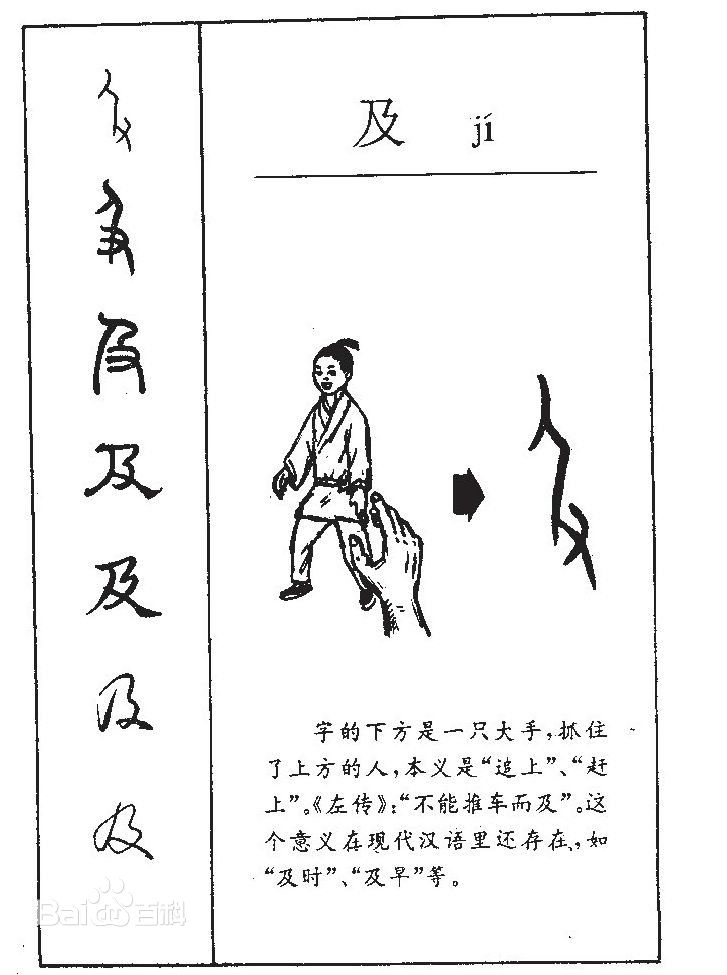 及 jí
字的下方是一只大手，抓住
了上方的人，本义是“追上”、“赶
上”。《左传》：“不能推车而及”。这
个意义在现代汉语里还存在，如
“及时”、“及早”等。
及
及
及
及
Bai百科